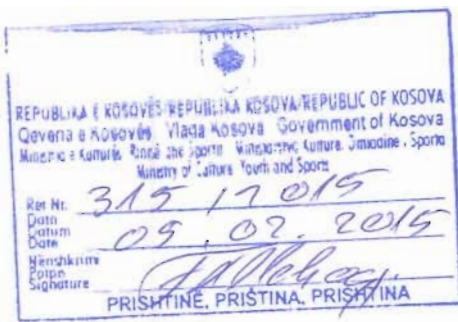 REPUBLIKA E KOSOVËS/REPUBLIKA KOSOVA/REPUBLIC OF KOSOVA
Qeveria e Kosovës Vlada Kosova Government of Kosova
Ministria e Kulturës, Rinisë dhe Sportit Ministarstvo Kulture, Omladine, Sporta
Ministry of Culture Youth and Sports
Ref Nr. 315 / 2015
Data
Datum
Date 05.02.2015
Nënshkrimi
Potpis
Signature
PRISHTINË, PRIŠTINA, PRISHTINA